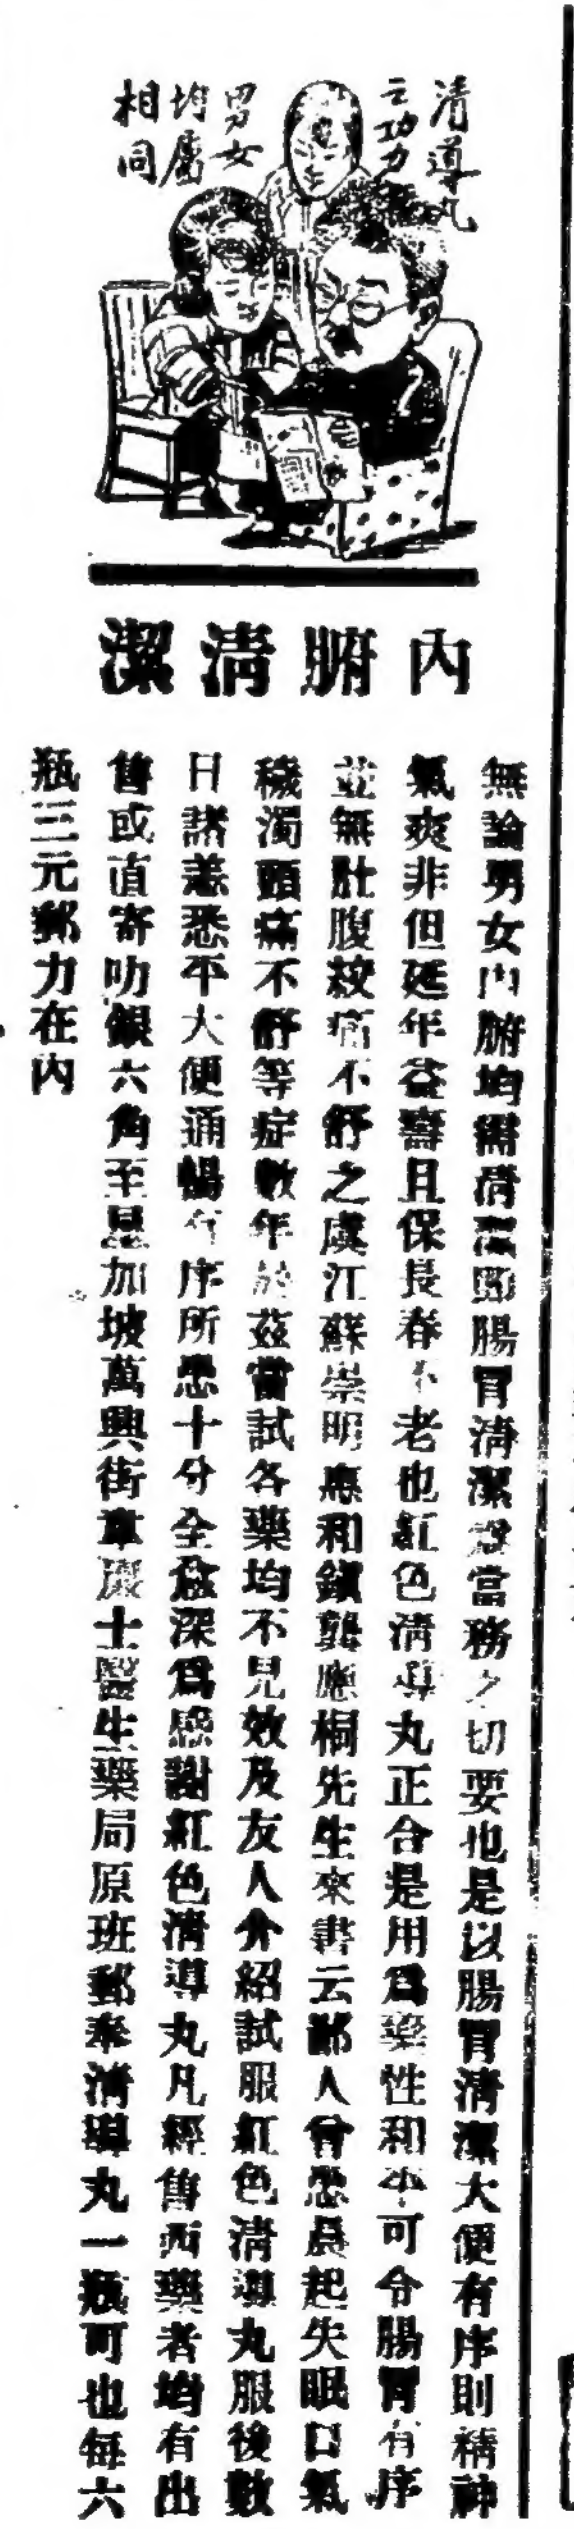 清導丸
之功力
男女
均屬
相同
內腑清潔
無論男女內腑均需清潔即腸胃清潔為當務之切要也是以腸胃清潔大便有序則精神
氣爽非但延年益壽且保長春不老也紅色清導丸正合是用為藥性和平可令腸胃有序
並無肚腹絞痛不舒之虞江蘇崇明應和鎮龔應桐先生來書云鄙人曾患晨起失眠口氣
穢濁頭痛不舒等症數年於茲嘗試各藥均不見效及友人介紹試服紅色清導丸服後數
日諸恙悉平大便通暢有序所患十分全愈深為感謝紅色清導丸凡經售西藥者均有出
售或直寄叻銀六角至星加坡萬興街韋廉士醫生藥局原班郵奉清導丸一瓶可也每六
瓶三元郵力在內